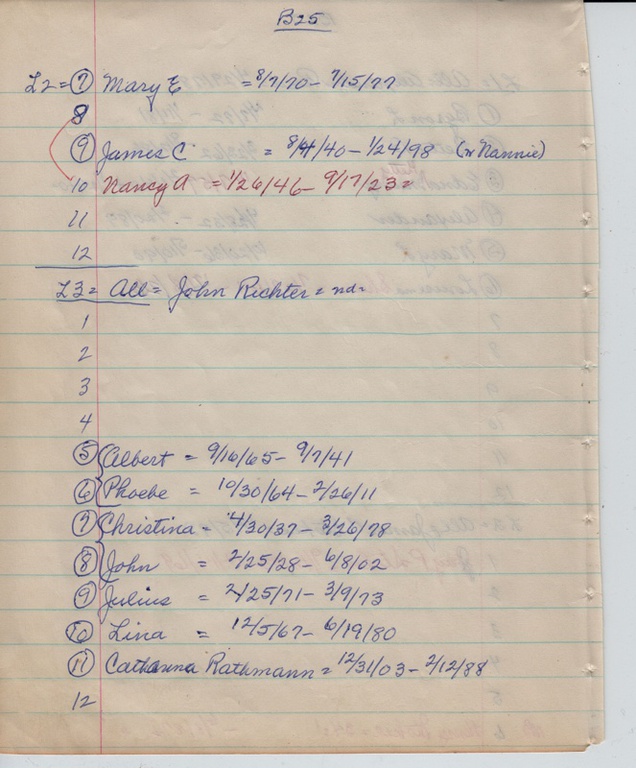 B25
L2 = 7 Mary E = 8/7/70 - 7/15/77
8
9 James C = 8/4/40 - 1/24/98 (w Nannie)
10 Nancy A = 1/26/46 - 9/17/23 =
11
12
L3 = All = John Richter = nd =
1
2
3
4
5 Albert = 9/16/65 - 9/7/41
6 Phoebe = 10/30/64 - 2/26/11
7 Christina = 4/30/37 - 3/26/78
8 John = 2/25/28 - 6/8/02
9 Julius = 2/25/71 - 3/9/73
10 Lina = 12/5/67 - 6/19/80
11 Catharina Rathmann = 12/31/03 - 2/12/88
12